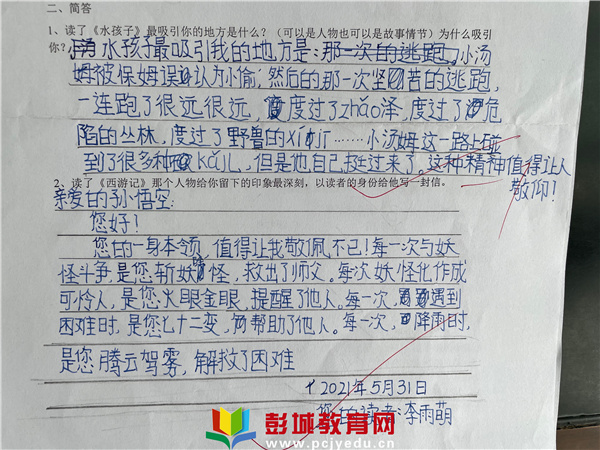 二、简答
1、读了《水孩子》最吸引你的地方是什么？（可以是人物也可以是故事情节）为什么吸引
你？
水孩子最吸引我的地方是：那一次的逃跑。小汤
姆被保姆误认为小偷，然后的那一次坚苦的逃跑，
一连跑了很远很远，度过了zhǎo泽，度过了危
险的丛林，度过了野兽的……小汤姆这一路上碰
到了很多种kǎn儿，但是他自己挺过来了，这种精神值得让人
敬仰！
2、读了《西游记》那个人物给你留下的印象最深刻，以读者的身份给他写一封信。
亲爱的孙悟空：
您好！
您的一身本领，值得让我敬佩不已！每一次与妖
怪斗争，是您斩妖怪，救出了师父。每次妖怪化作成
可怜人，是您火眼金眼，提醒了他人。每一次，遇到
困难时，是您七十二变，帮助了他人。每一次，降雨时，
是您腾云驾雾，解救了困难
2021年5月31日
您的读者：李雨萌
彭城教育网
www.pcjyedu.cn